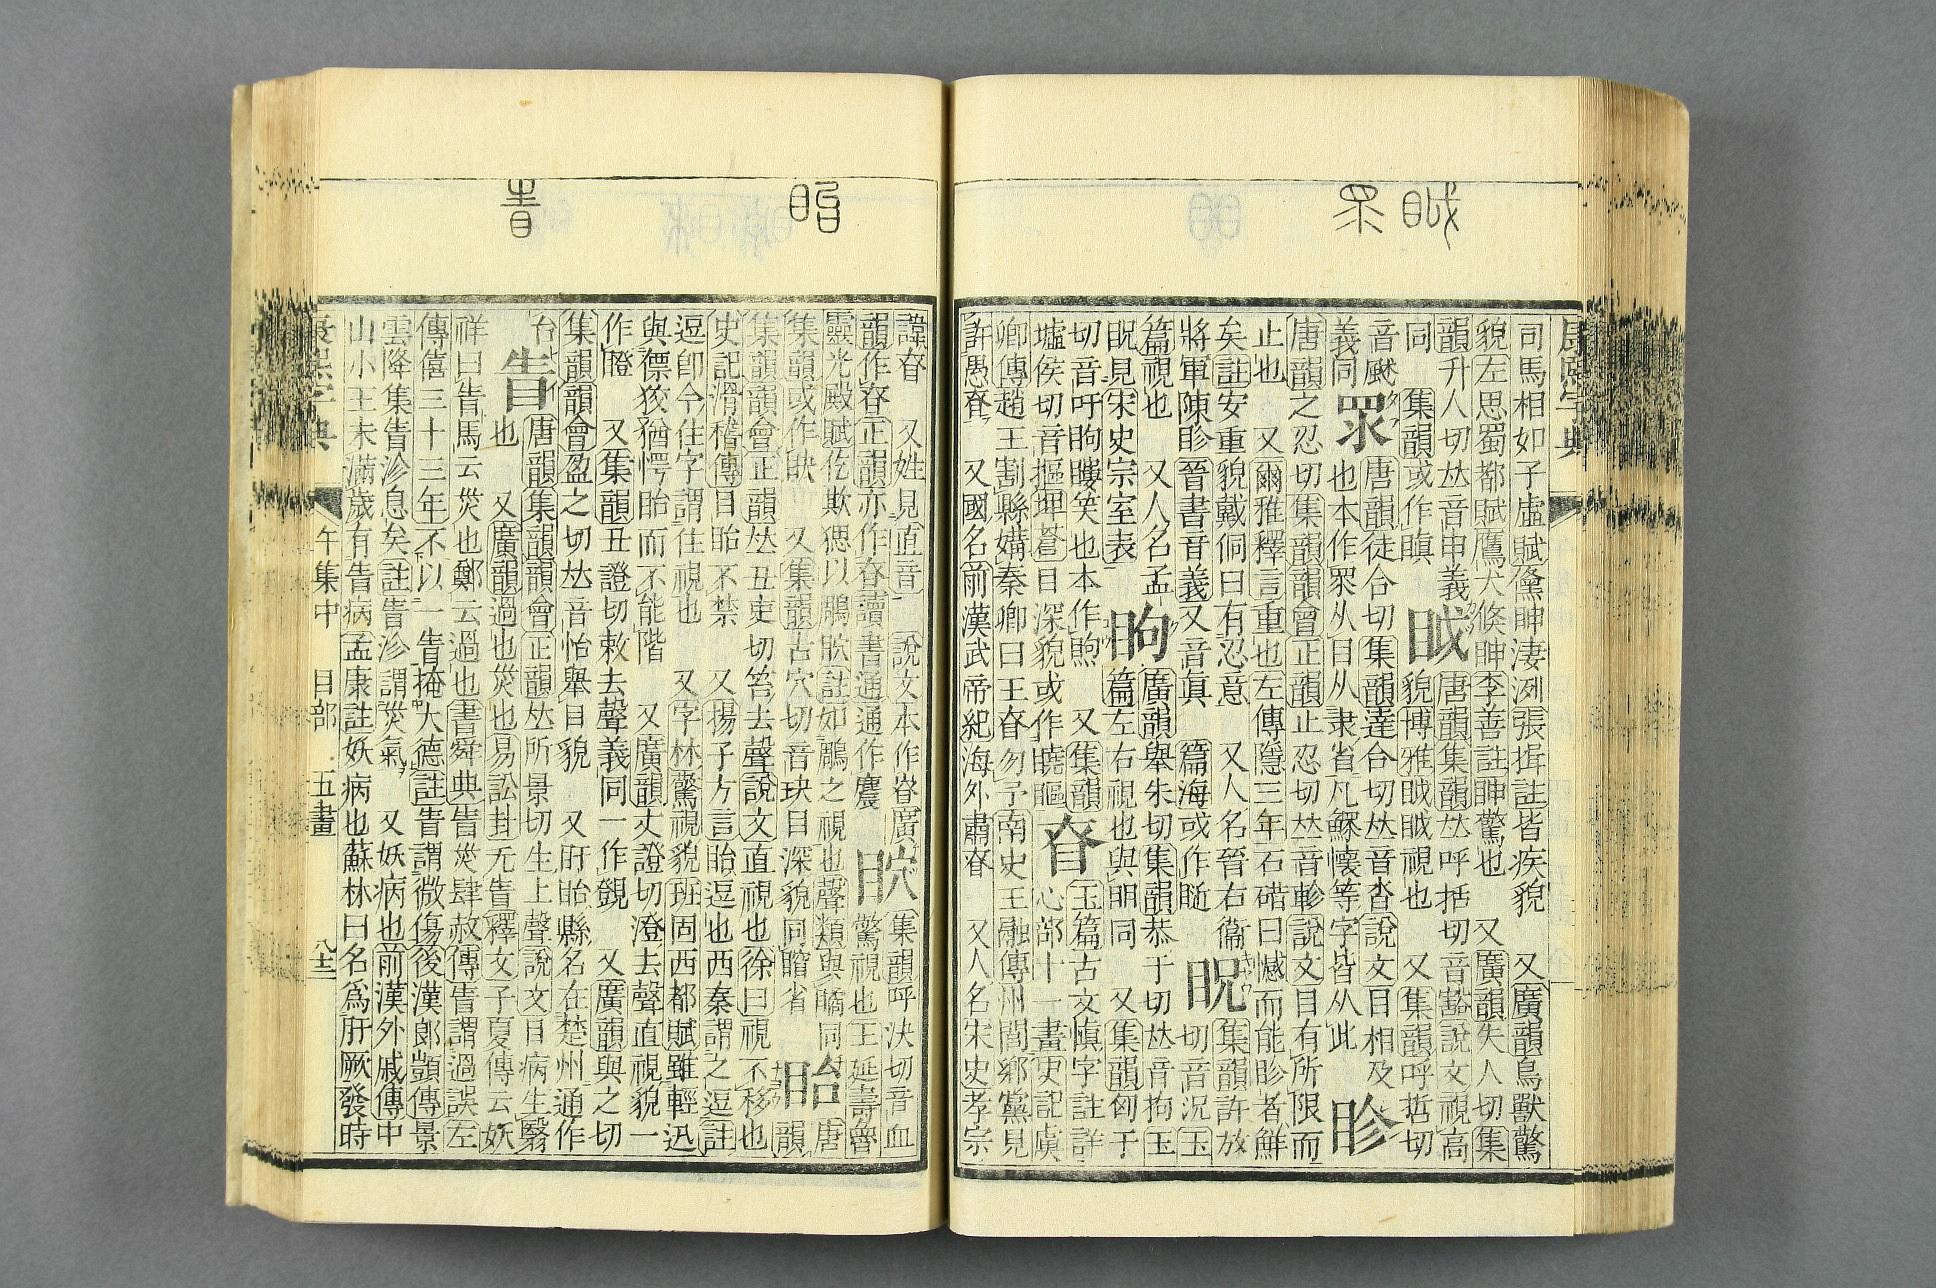 眓 眔
康熙字典
司馬相如子虛賦儵眒淒浰張揖註皆疾貌 又廣韻鳥獸驚
貌左思蜀都賦鷹犬倏眒李善註眒驚也 又廣韻失人切集
韻升人切𠀤音申義
同 集韻或作瞋
眓
唐韻集韻𠀤呼括切音豁說文視高
貌博雅眓眓視也 又集韻呼哲切
音颰
義同
眔
唐韻徒合切集韻達合切𠀤音沓說文目相及
也本作眔从目从隶省凡鰥懷等字皆从此
眕
唐韻之忍切集韻韻會正韻止忍切𠀤音軫說文目有所限而
止也 又爾雅釋言重也左傳隱三年石碏曰憾而能眕者鮮
矣註安重貌戴侗曰有忍意 又人名晉右衞
將軍陳眕晉書音義又音眞 篇海或作
眖
集韻許放
切音況玉
篇視也 又人名孟
眖見宋史宗室表
眗
廣韻舉朱切集韻恭于切𠀤音拘玉
篇左右視也與䀠同 又集韻匈于
切音吁眗瞜笑也本作煦 又集韻
墟侯切音摳埤蒼目深貌或作瞘
眘
玉篇古文愼字註詳
心部十一畫史記虞
卿傳趙王割縣媾秦卿曰王眘勿予南史王融傳州閭鄉黨見
許愚眘 又國名前漢武帝紀海外肅眘 又人名宋史孝宗
眙 眚
諱眘 又姓見直音 說文本作昚廣
韻作昚正韻亦作昚讀書通通作
集韻呼決切音血
驚視也王延壽魯
靈光殿賦仡欺以鵰註如鵰之視也聲類與同
集韻或作 又集韻古穴切音玦目深貌同省
眙
唐
韻
集韻韻會正韻𠀤丑吏切笞去聲說文直視也徐曰視不移也
史記滑稽傳目眙不禁 又揚子方言眙逗也西秦謂之逗註
逗卽今住字謂住視也 又字林驚視貌班固西都賦雖輕迅
與僄狡猶愕眙而不能階 又廣韻丈證切澄去聲直視貌一
作瞪 又集韻丑證切敕去聲義同一作覴 又廣韻與之切
集韻韻會盈之切𠀤音怡舉目貌 又盱眙縣名在楚州通作
台
眚
唐韻集韻韻會正韻𠀤所景切生上聲說文目病生翳
也 又廣韻過也災也易訟卦无眚釋文子夏傳云妖
祥曰眚馬云災也鄭云過也書舜典眚災肆赦傳眚謂過誤左
傳僖三十三年不以一眚掩大德註眚謂微傷後漢郞顗傳景
雲降集眚沴息矣註眚沴謂災氣 又妖病也前漢外戚傳中
山小王未滿歲有眚病孟康註妖病也蘇林曰名爲肝厥發時
康熙字典 午集中 目部 五畫